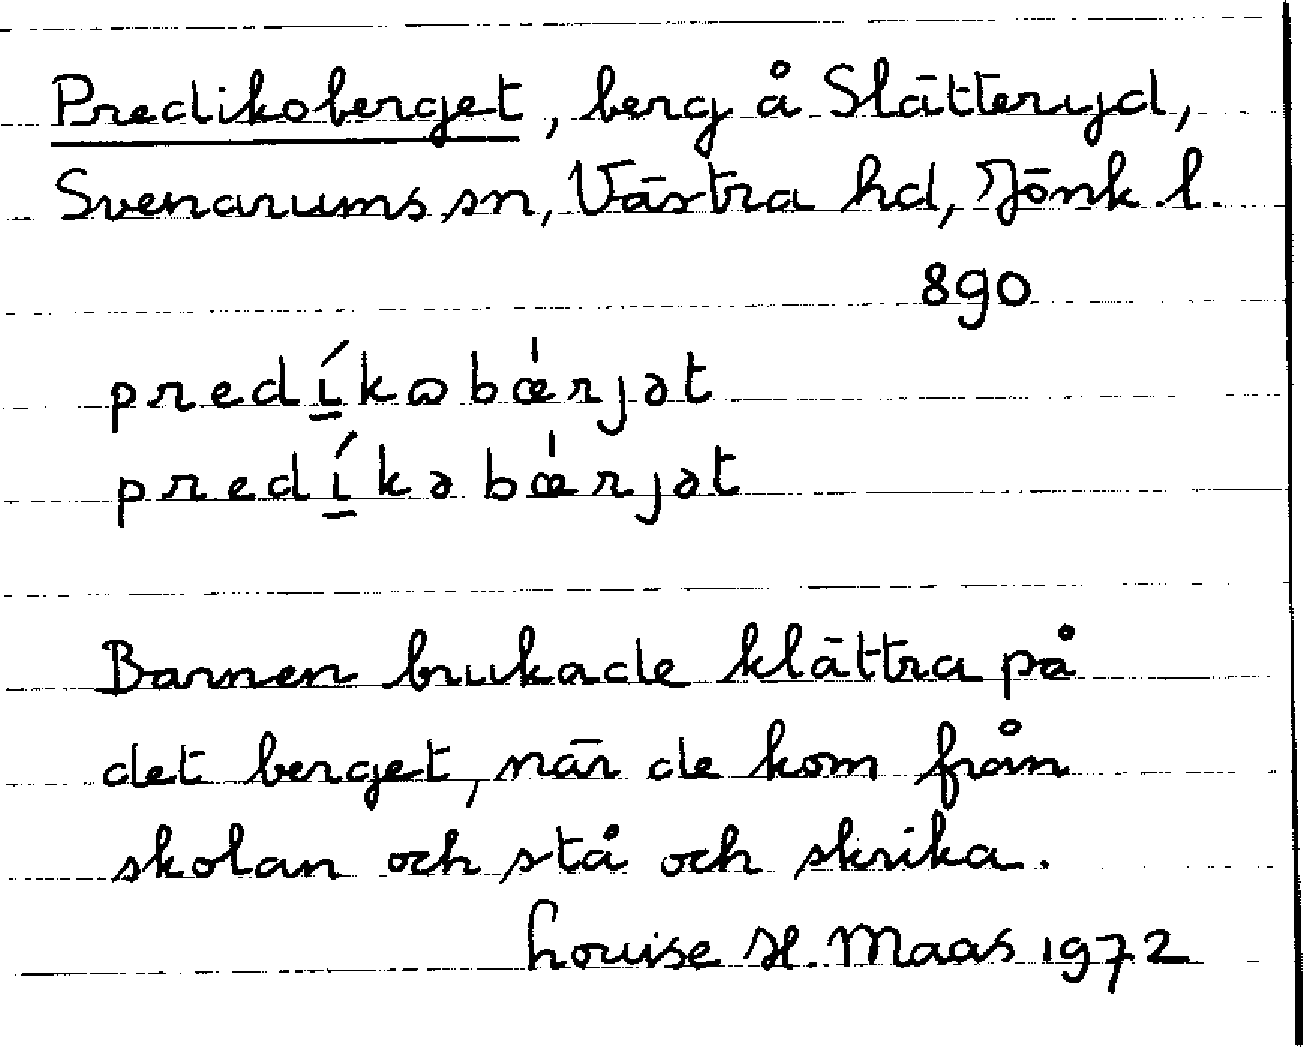 Predikoberget, berg å Slätteryd,
Svenarums sn, Västra hd, Jönk. l.
890
predí̱kɷbœ́rjət
predí̱kəbœ́rjət
Barnen brukade klättra på
det berget, när de kom från
skolan och stå och skrika.
Louise H. Maas 1972